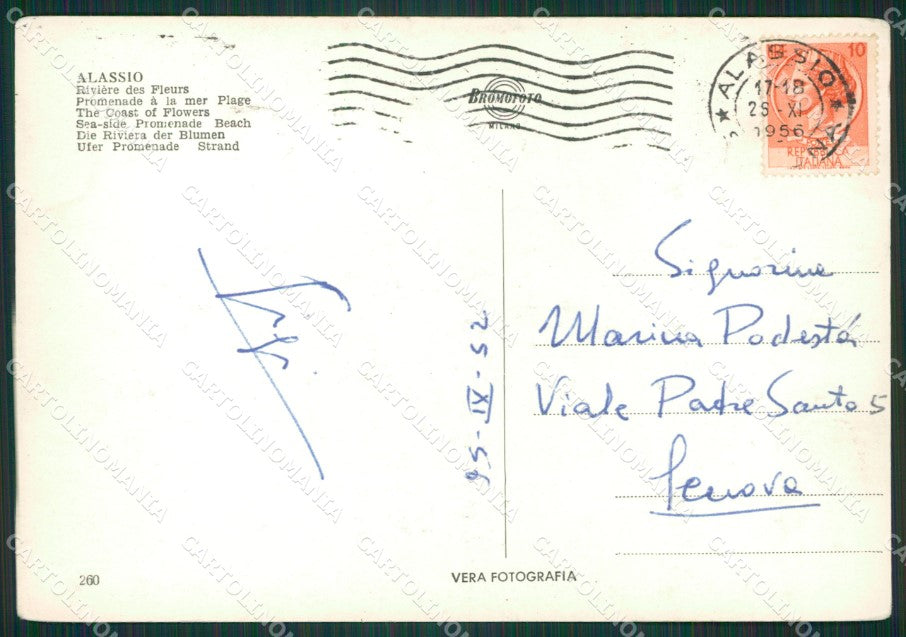 ALASSIO
Rivière des Fleurs
Promenade à la mer Plage
The Coast of Flowers
Sea-side Promenade Beach
Die Riviera der Blumen
Ufer Promenade Strand
BROMOFOTO
MILANO
ALASSIO
17-18
XI
1956
10
REPUBBLICA
ITALIANA
25-XI-56
Signorina
Marina Podestá
Viale Padre Santo 5
Genova
260
VERA FOTOGRAFIA
CARTOLINOMANIA